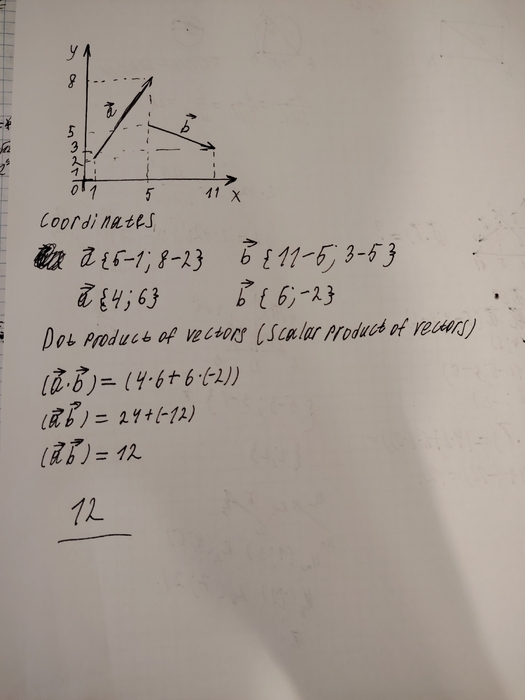 y
8
a
b
5
3
2
1
0 1 5 11 x
Coordinates
a {5-1; 8-2} b {11-5; 3-5}
a {4; 6} b {6; -2}
Dot product of vectors (Scalar product of vectors)
(a·b) = (4·6+6·(-2))
(ab) = 24+(-12)
(ab) = 12
12